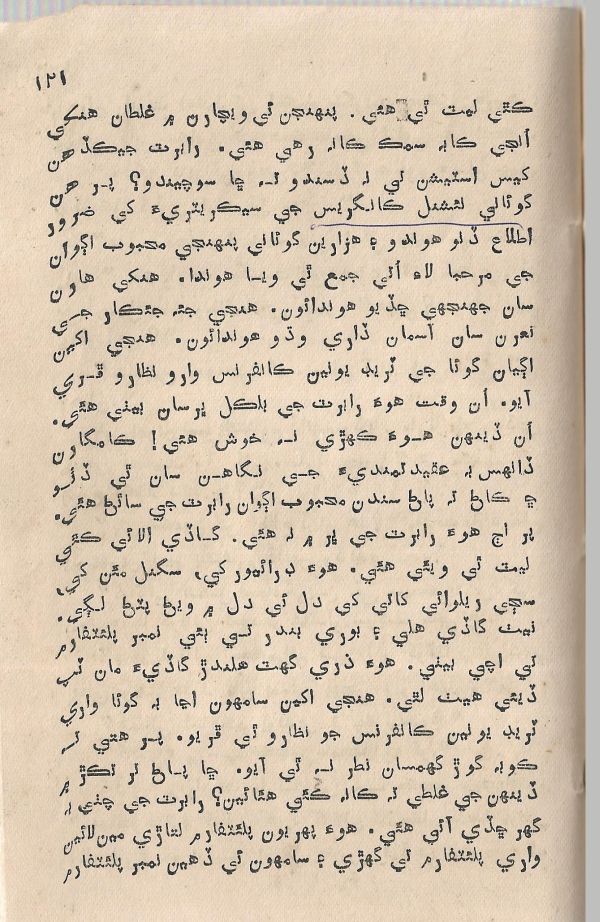 ١٢١
ڪٿي ليمٽ ٿي هئي. پنهنجن ئي ويچارن ۾ غلطان هنکي
اُڃي ڪابہ سمڪ ڪانہ رهي هئي. رابرٽ جيڪڏهن
ڪيس اسٽيشن تي نہ ڏسندو تہ ڇا سوچيندو؟ پر هن
گوئاني نئشنل ڪانگريس جي سيڪريٽريءَ کي ضرور
اطلاع ڏنو هوندو ۽ هزارين گوئاني پنهنجي محبوب اڳواڻ
جي مرحبا لاءِ اُتي جمع ٿي ويا هوندا. هنکي هارن
سان جهنجهي ڇڏيو هوندائون. هنجي جئہ جئڪار جي
نعرن سان آسمان ڏاري وڌو هوندائون. هنجي اکين
اڳيان گوئا جي ٽريڊ يونين ڪانفرنس وارو نظارو ڦري
آيو. اُن وقت هوءَ رابرٽ جي بلڪل ڀرسان بيٺي هئي.
اُن ڏينهن هوءَ ڪهڙي نہ خوش هئي! ڪامگارن
ڏانهس بہ عقيدتمنديءَ جي نگاهن سان ٿي ڏٺو
۽ ڪاڻ تہ پاڻ سندن محبوب اڳواڻ رابرٽ جي ساٿڻ هئي.
پر اڄ هوءَ رابرٽ جي ڀر ۾ نہ هئي. گاڏي الائي ڪٿي
ليمٽ ٿي ويئي هئي. هوءَ ڊرائيور کي، سگنل مئن کي،
سڄي ريلوائي کاتي کي دل ئي دل ۾ ويڻ پٽڻ لڳي.
نيٺ گاڏي هلي ۽ بوري بندر تي ٻئي نمبر پلئٽفارم
تي اچي بيٺي. هوءَ ذري گهٽ هلندڙ گاڏيءَ مان ٽپ
ڏيئي هيٺ لٿي. هنجي اکين سامهون اڃا بہ گوئا واري
ٽريڊ يونين ڪانفرنس جو نظارو ٿي ڦريو. پر هتي تہ
ڪوبہ گوڙ گهمسان نظر نہ ٿي آيو. ڇا پاڻ تہ تڪڙ ۾
ڏينهن جي غلطي تہ ڪانہ ڪئي هئائين؟ رابرٽ جي چٺي بہ
گهر ڇڏي آئي هئي. هوءَ پهريون پلئٽفارم لتاڙي مين لائين
واري پلئٽفارم تي گهڙي ۽ سامهون ئي ڏهين نمبر پلئٽفارم